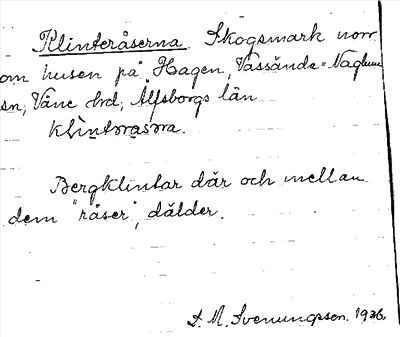 Klinteråserna. Skogsmark norr
om husen på Hagen, Vassända-Naglum
sn, Väne hrd, Älfsborgs län
Bergklintar där och mellan
dem "råser", dälder.
D. M. Svenungsson. 1936.